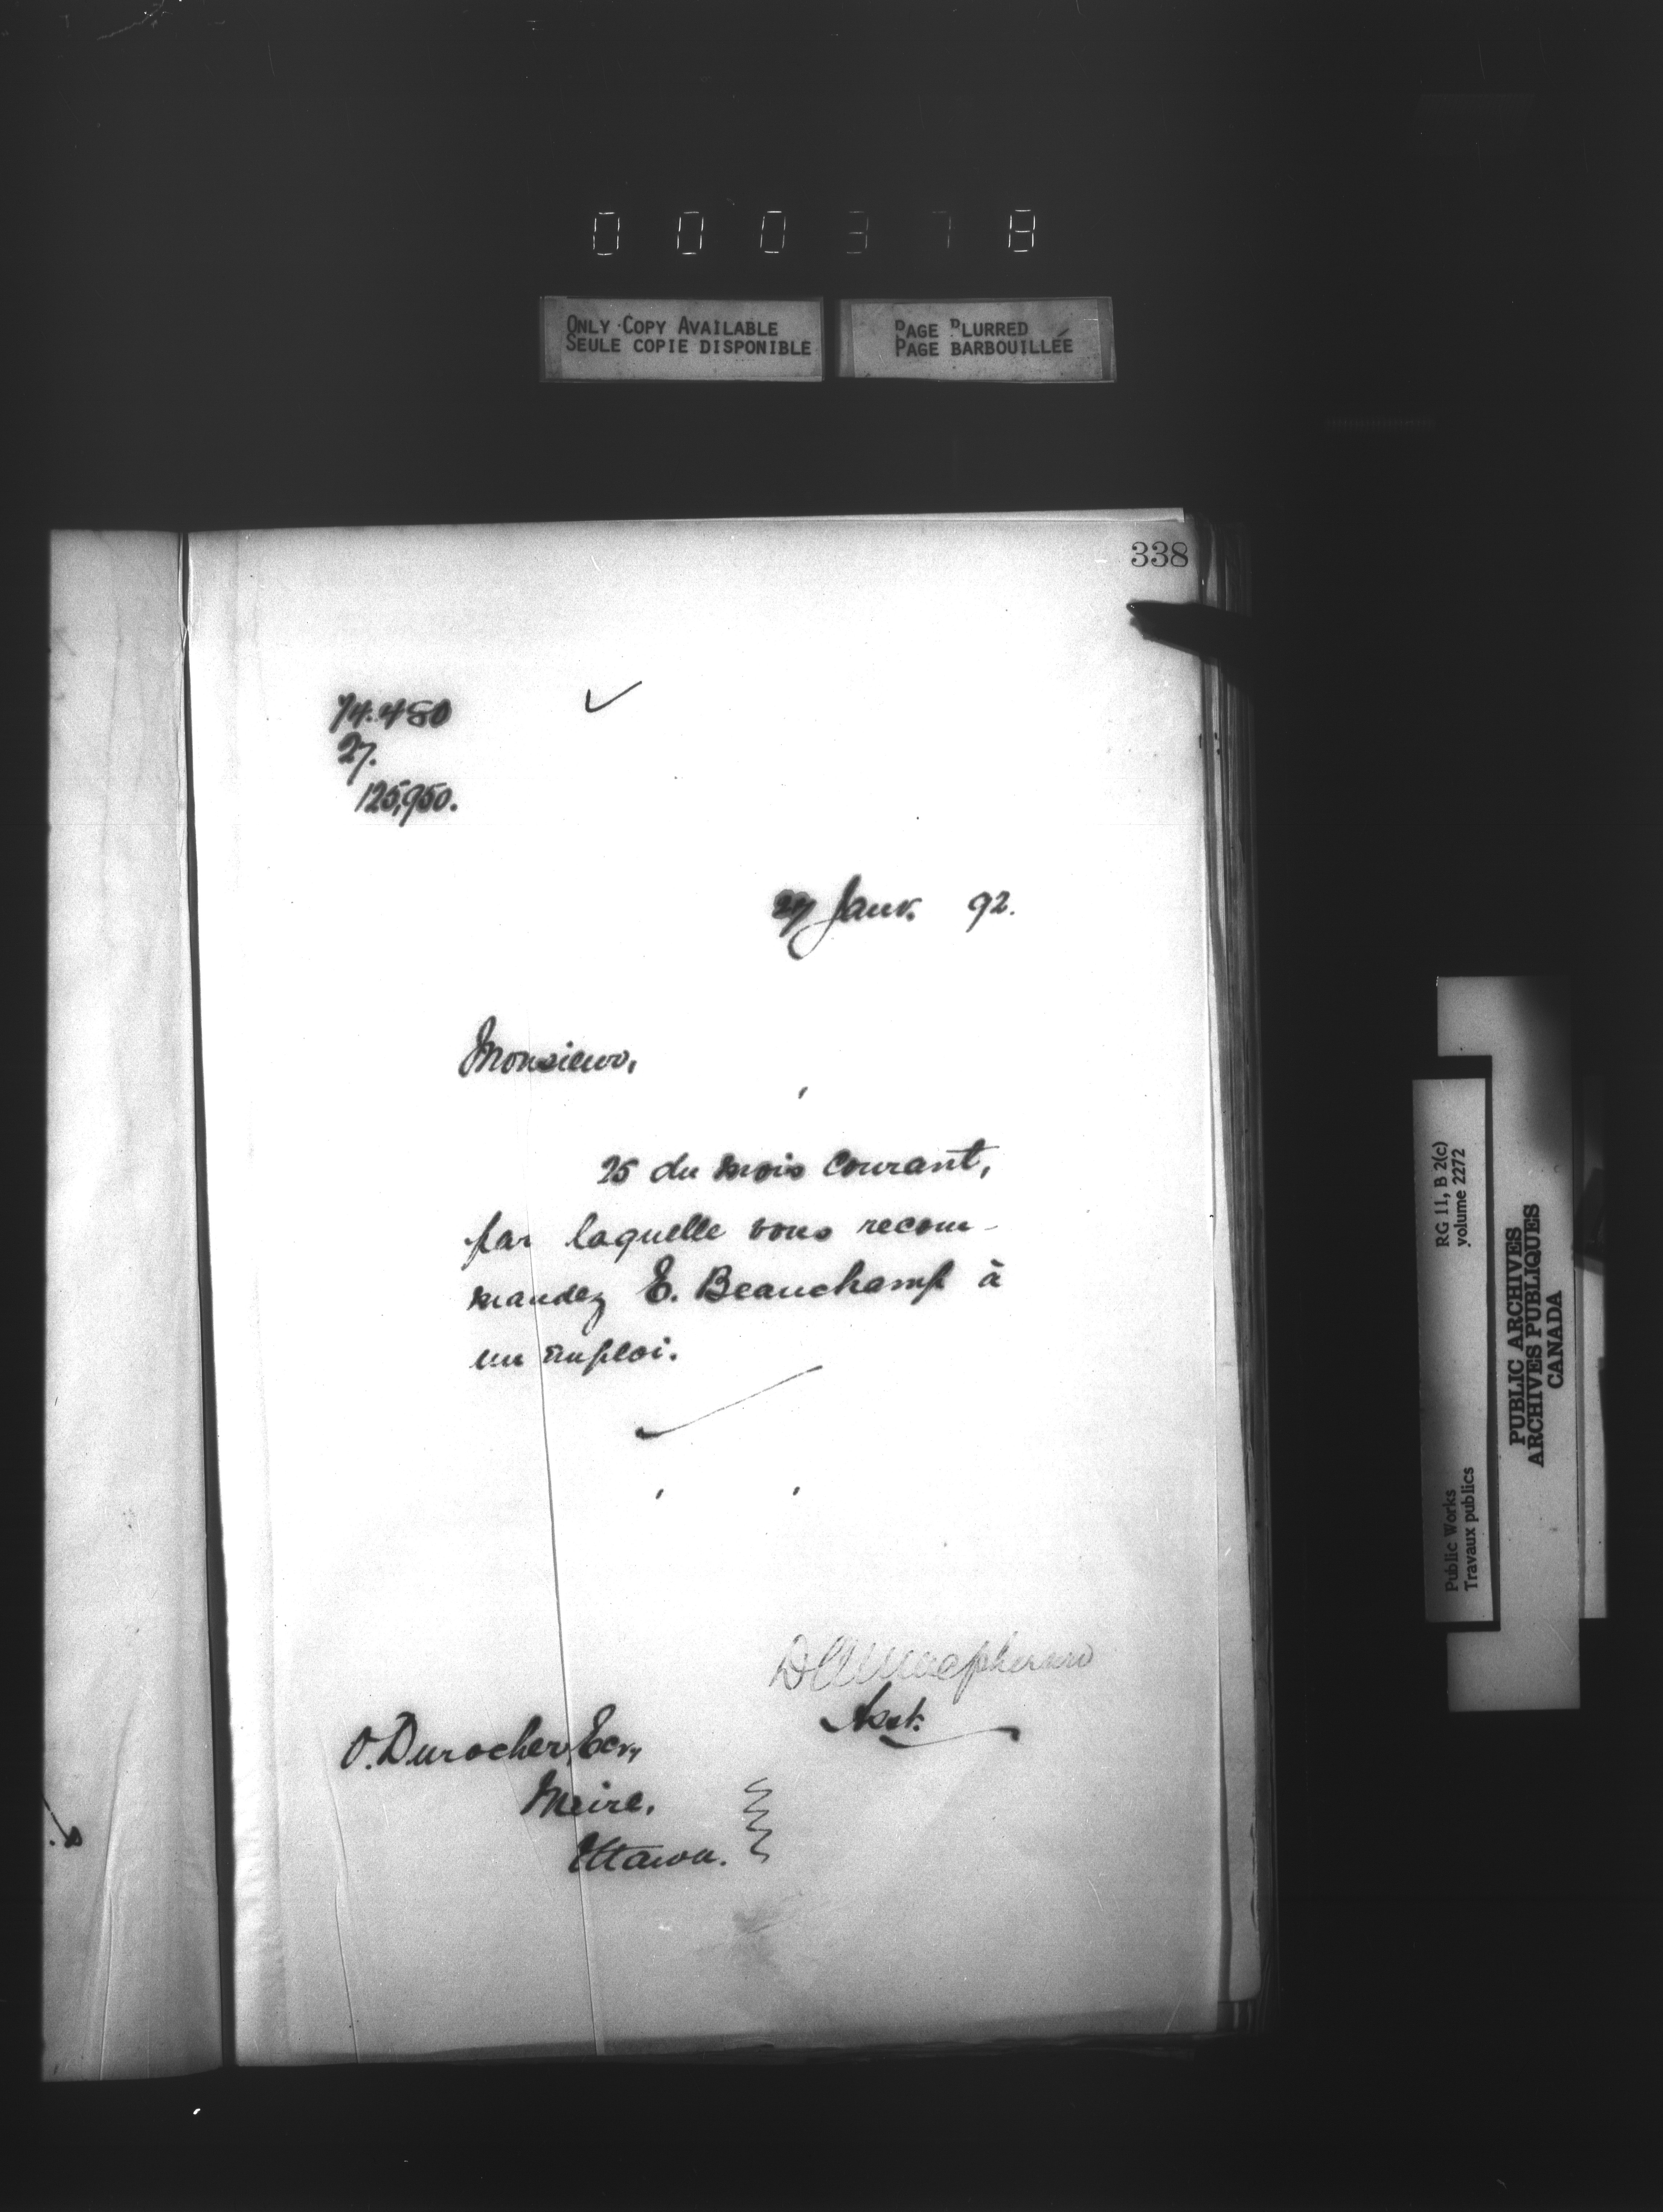 000378
ONLY COPY AVAILABLE
SEULE COPIE DISPONIBLE
PAGE BLURRED
PAGE BARBOUILLÉE
338
74.480
27.
125,950.
27 Janv. 92.
Monsieur,
25 du mois courant,
par laquelle vous recom-
mandez E. Beauchamp à
un emploi.
DAMacpherson
Asst.
O. Durocher, Ecr,
Maire,
Ottawa.
RG 11, B 2(c)
volume 2272
Public Works
Travaux publics
PUBLIC ARCHIVES
ARCHIVES PUBLIQUES
CANADA